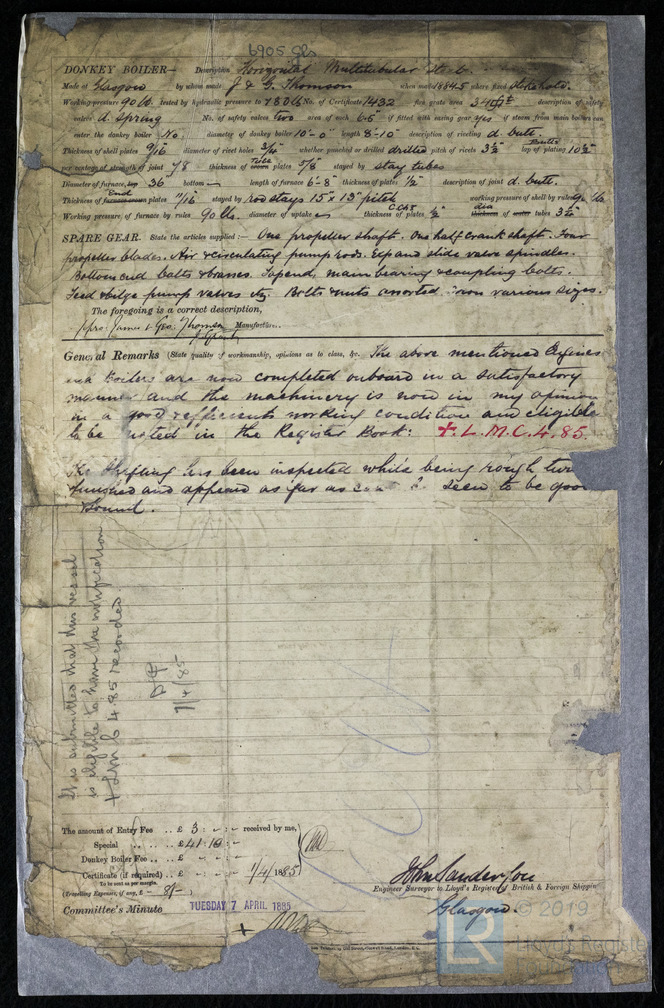 6905 Gls
DONKEY BOILER— Description Horizontal Multitubular Steel
Made at Glasgow by whom made J & G. Thomson when made 1884-5 where fixed stokehold.
Working pressure 90 lb tested by hydraulic pressure to 180 lb No. of Certificate 1432 fire grate area description of safety
valves d. spring No. of safety valves two area of each 6.5 if fitted with easing gear yes if steam from main boilers can
enter the donkey boiler No. diameter of donkey boiler 10'-0" length 8'-10" description of riveting d. butt.
Thickness of shell plates 9/16 diameter of rivet holes whether punched or drilled drilled pitch of rivets 3½ lap of plating 10½
per centage of strength of joint 78 thickness of tube plates 5/8 stayed by stay tubes
Diameter of furnace, 36 bottom length of furnace 6'-8" thickness of plates ½ description of joint d. butt.
Thickness of End plates 11/16 stayed by rod stays 15" x 13" pitch working pressure of shell by rules 90 lb
Working pressure of furnace by rules 90 lbs. diameter of uptake thickness of plates ½ tubes
SPARE GEAR. State the articles supplied:— One propeller shaft. One half crank shaft. Four
propeller blades. Air & circulating pump rods. Expan slide valve spindles.
Bottom end bolts & brasses. Top end, main bearing & coupling bolts.
Feed & bilge pump valves &c. Bolts & nuts assorted. Iron various sizes.
The foregoing is a correct description,
pro: James & Geo: Thomson Manufacturer.
General Remarks (State quality of workmanship, opinions as to class, &c. The above mentioned Engines
Boilers are now completed onboard in a satisfactory
manner and the machinery is now in my opinion
in a good & efficient working condition and eligible
to be noted in the Register Book: + L.M.C. 4.85.
The Shafting has been inspected while being rough turned
finished and appears as far as can be seen to be good
sound.
It is submitted that this vessel
is eligible to have the notification
+ LMC 4.85 recorded
7/4/85
The amount of Entry Fee .. £ 3 : - : - received by me,
Special .. £ 41 : 10 : -
Donkey Boiler Fee .. £ - - -
Certificate (if required) .. £ - - - 1/4/1885
To be sent as per margin.
(Travelling Expenses, if any, £ - 8/- )
John Sanderson
Engineer Surveyor to Lloyd's Register of British & Foreign Shipping
Committee's Minute TUESDAY 7 APRIL 1885
Glasgow.
© 2019
LR
Lloyd's Register